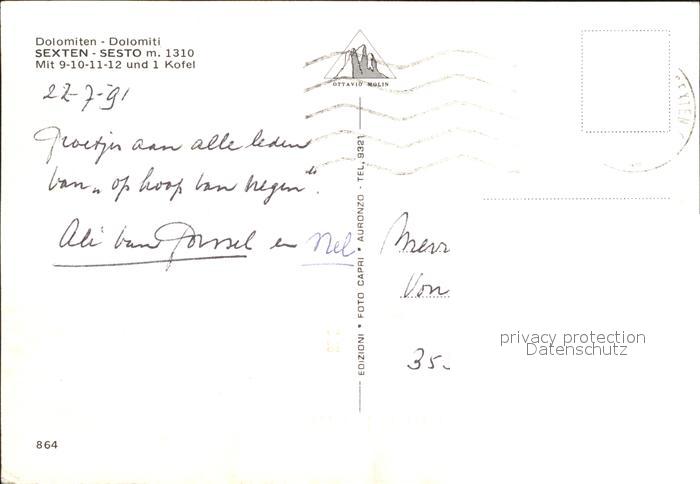 Dolomiten - Dolomiti
SEXTEN - SESTO m. 1310
Mit 9-10-11-12 und 1 Kofel
22-7-91
Groetjes aan alle leden
van „op hoop van zegen".
Ali van en Nel
OTTAVIO MOLIN
EDIZIONI * FOTO CAPRI * AURONZO - TEL. 9321
SEXTEN
Mevr
Von
35.
privacy protection
Datenschutz
864